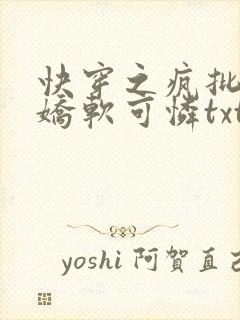 快穿之疯批
嬌軟可憐txt
yoshi 阿賀直己